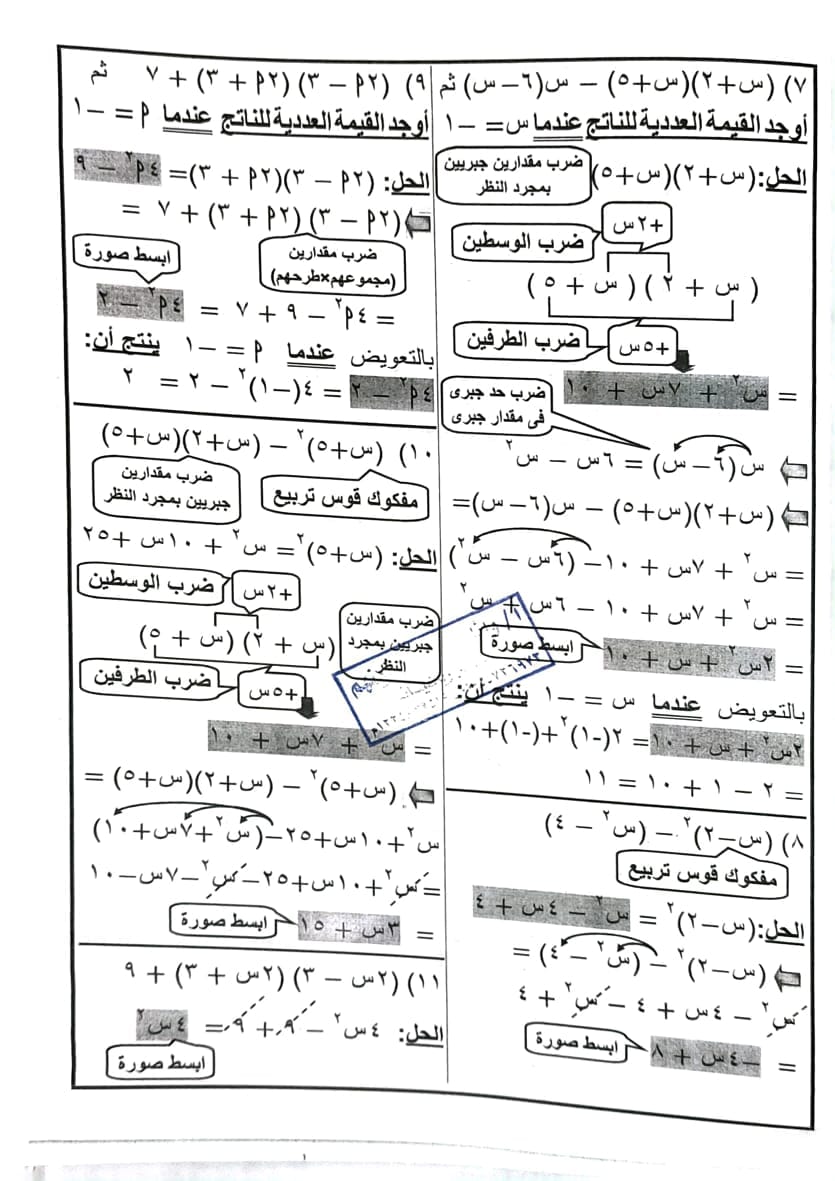 ٧) (س+٢)(س+٥) – س(٦–س) ثم
أوجد القيمة العددية للناتج عندما س= –١
الحل:(س+٢)(س+٥)
ضرب مقدارين جبريين
بمجرد النظر
+٢س
ضرب الوسطين
(س + ٢)(س + ٥)
+٥س
ضرب الطرفين
= س٢ + ٧س + ١٠
ضرب حد جبرى
فى مقدار جبرى
س(٦–س) = ٦س – س٢
(س+٢)(س+٥) – س(٦–س)=
= س٢ + ٧س + ١٠– (٦س – س٢)
= س٢ + ٧س + ١٠ – ٦س + س٢
= ٢س٢ + س + ١٠
ابسط صورة
بالتعويض عندما س = –١ ينتج أن:
٢س٢ + س + ١٠= ٢(-١)٢+(-١)+١٠
= ٢ – ١ + ١٠ = ١١
٨) (س–٢)٢ – (س٢ – ٤)
مفكوك قوس تربيع
الحل:(س–٢)٢ = س٢ – ٤س + ٤
(س–٢)٢ – (س٢ – ٤) =
س٢ – ٤س + ٤ – س٢ + ٤
= –٤س + ٨
ابسط صورة
٩) (٢م – ٣) (٢م + ٣) + ٧ ثم
أوجد القيمة العددية للناتج عندما م = –١
الحل: (٢م – ٣)(٢م + ٣)= ٤م٢ – ٩
(٢م – ٣) (٢م + ٣) + ٧ =
ضرب مقدارين
(مجموعهم×طرحهم)
ابسط صورة
= ٤م٢ – ٩ + ٧ = ٤م٢ – ٢
بالتعويض عندما م = –١ ينتج أن:
٤م٢ – ٢ = ٤(–١)٢ – ٢ = ٢
١٠) (س+٥)٢ – (س+٢)(س+٥)
مفكوك قوس تربيع
ضرب مقدارين
جبريين بمجرد النظر
الحل: (س+٥)٢= س٢ + ١٠س +٢٥
+٢س
ضرب الوسطين
ضرب مقدارين
جبريين بمجرد
النظر
(س + ٢) (س + ٥)
+٥س
ضرب الطرفين
= س٢ + ٧س + ١٠
(س+٥)٢ – (س+٢)(س+٥) =
س٢+١٠س+٢٥–(س٢+٧س+١٠)
=س٢+١٠س+٢٥–س٢–٧س–١٠
= ٣س + ١٥
ابسط صورة
١١) (٢س – ٣) (٢س + ٣) + ٩
الحل: ٤س٢ – ٩ + ٩ = ٤س٢
ابسط صورة
١